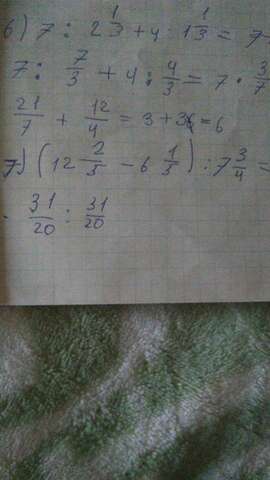 6) 7 : 2 1/3 + 4 : 1 1/3 = 7
7 : 7/3 + 4 : 4/3 = 7 · 3/7
21/7 + 12/4 = 3 + 3 = 6
7) (12 2/5 - 6 1/5) : 7 3/4 =
31/20 : 31/20